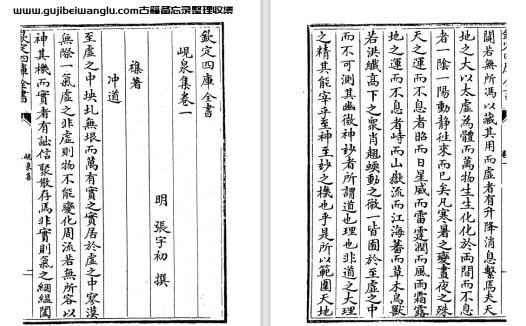 www.gujibeiwanglu.com古籍备忘录整理收集
欽定四庫全書
峴泉集卷一
明 張宇初 撰
襍著
冲道
至虛之中坱圠無垠而萬有實之實居於虛之中寥漠
無際一氣虛之非虛則物不能變化周流若無所容以
神其機而實者有詘信聚散存焉非實則氣之絪縕闔
欽定四庫全書
峴泉集
闢若無所馮以藏其用而虛者有升降消息繫焉夫天
地之大以太虛為體而萬物生生化化於兩間而不息
者一陰一陽動静往來而已矣凡寒暑之變晝夜之殊
天之運而不息者昭而日星威而雷霆潤而風雨霜露
地之運而不息者峙而山嶽流而江海蕃而草木鳥獸
若洪纖高下之衆肖翹蝡動之微一皆囿於至虛之中
而不可測其幽微神妙者所謂道也理也非道之大理
之精其能宰乎至神至妙之機也乎是所以範圍天地